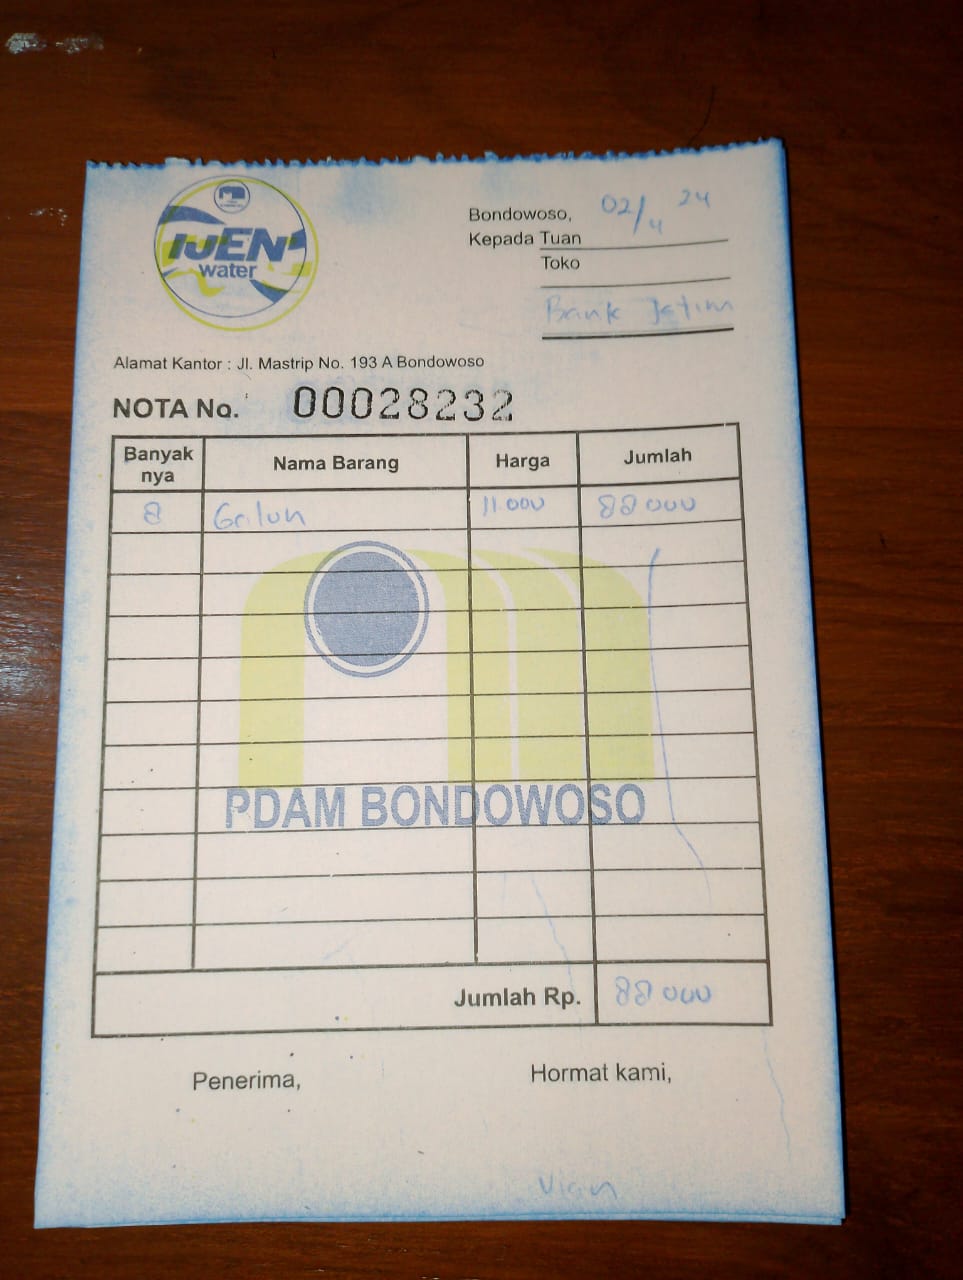 IJEN
water
Bondowoso, 02/4 24
Kepada Tuan
Toko
Bank Jatim
Alamat Kantor : Jl. Mastrip No. 193 A Bondowoso
NOTA No. 00028232
Banyak nya Nama Barang Harga Jumlah
8 Galon 11.000 88000
PDAM BONDOWOSO
Jumlah Rp. 88000
Penerima, Hormat kami,
Vian